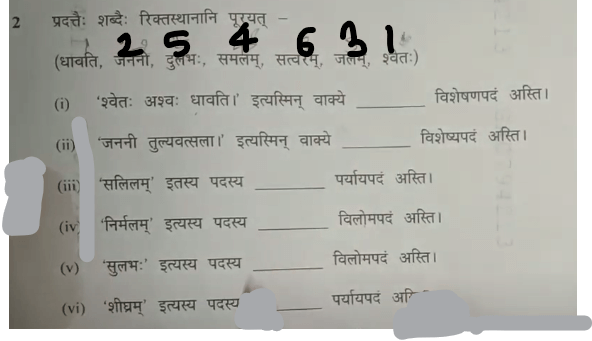 2 प्रदत्तैः शब्दैः रिक्तस्थानानि पूरयत् –
2 5 4 6 3 1
(धावति, जननी, दुर्लभः, समलम्, सत्वरम्, जलम्, श्वेतः)
(i) 'श्वेतः अश्वः धावति।' इत्यस्मिन् वाक्ये ________ विशेषणपदं अस्ति।
(ii) 'जननी तुल्यवत्सला।' इत्यस्मिन् वाक्ये ________ विशेष्यपदं अस्ति।
(iii) 'सलिलम्' इतस्य पदस्य ________ पर्यायपदं अस्ति।
(iv) 'निर्मलम्' इत्यस्य पदस्य ________ विलोमपदं अस्ति।
(v) 'सुलभः' इत्यस्य पदस्य ________ विलोमपदं अस्ति।
(vi) 'शीघ्रम्' इत्यस्य पदस्य ________ पर्यायपदं